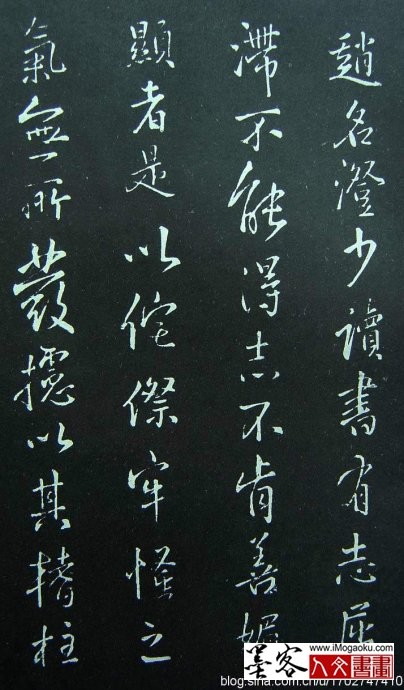 趙名澄少讀書有志屈
滯不能得志不肯善媚
顯者是以侘傺牢慅之
氣無所發攄以其榰柱
墨客
www.iMogaoku.com
人文書畫
blog.sina.com.cn/u/1702747410